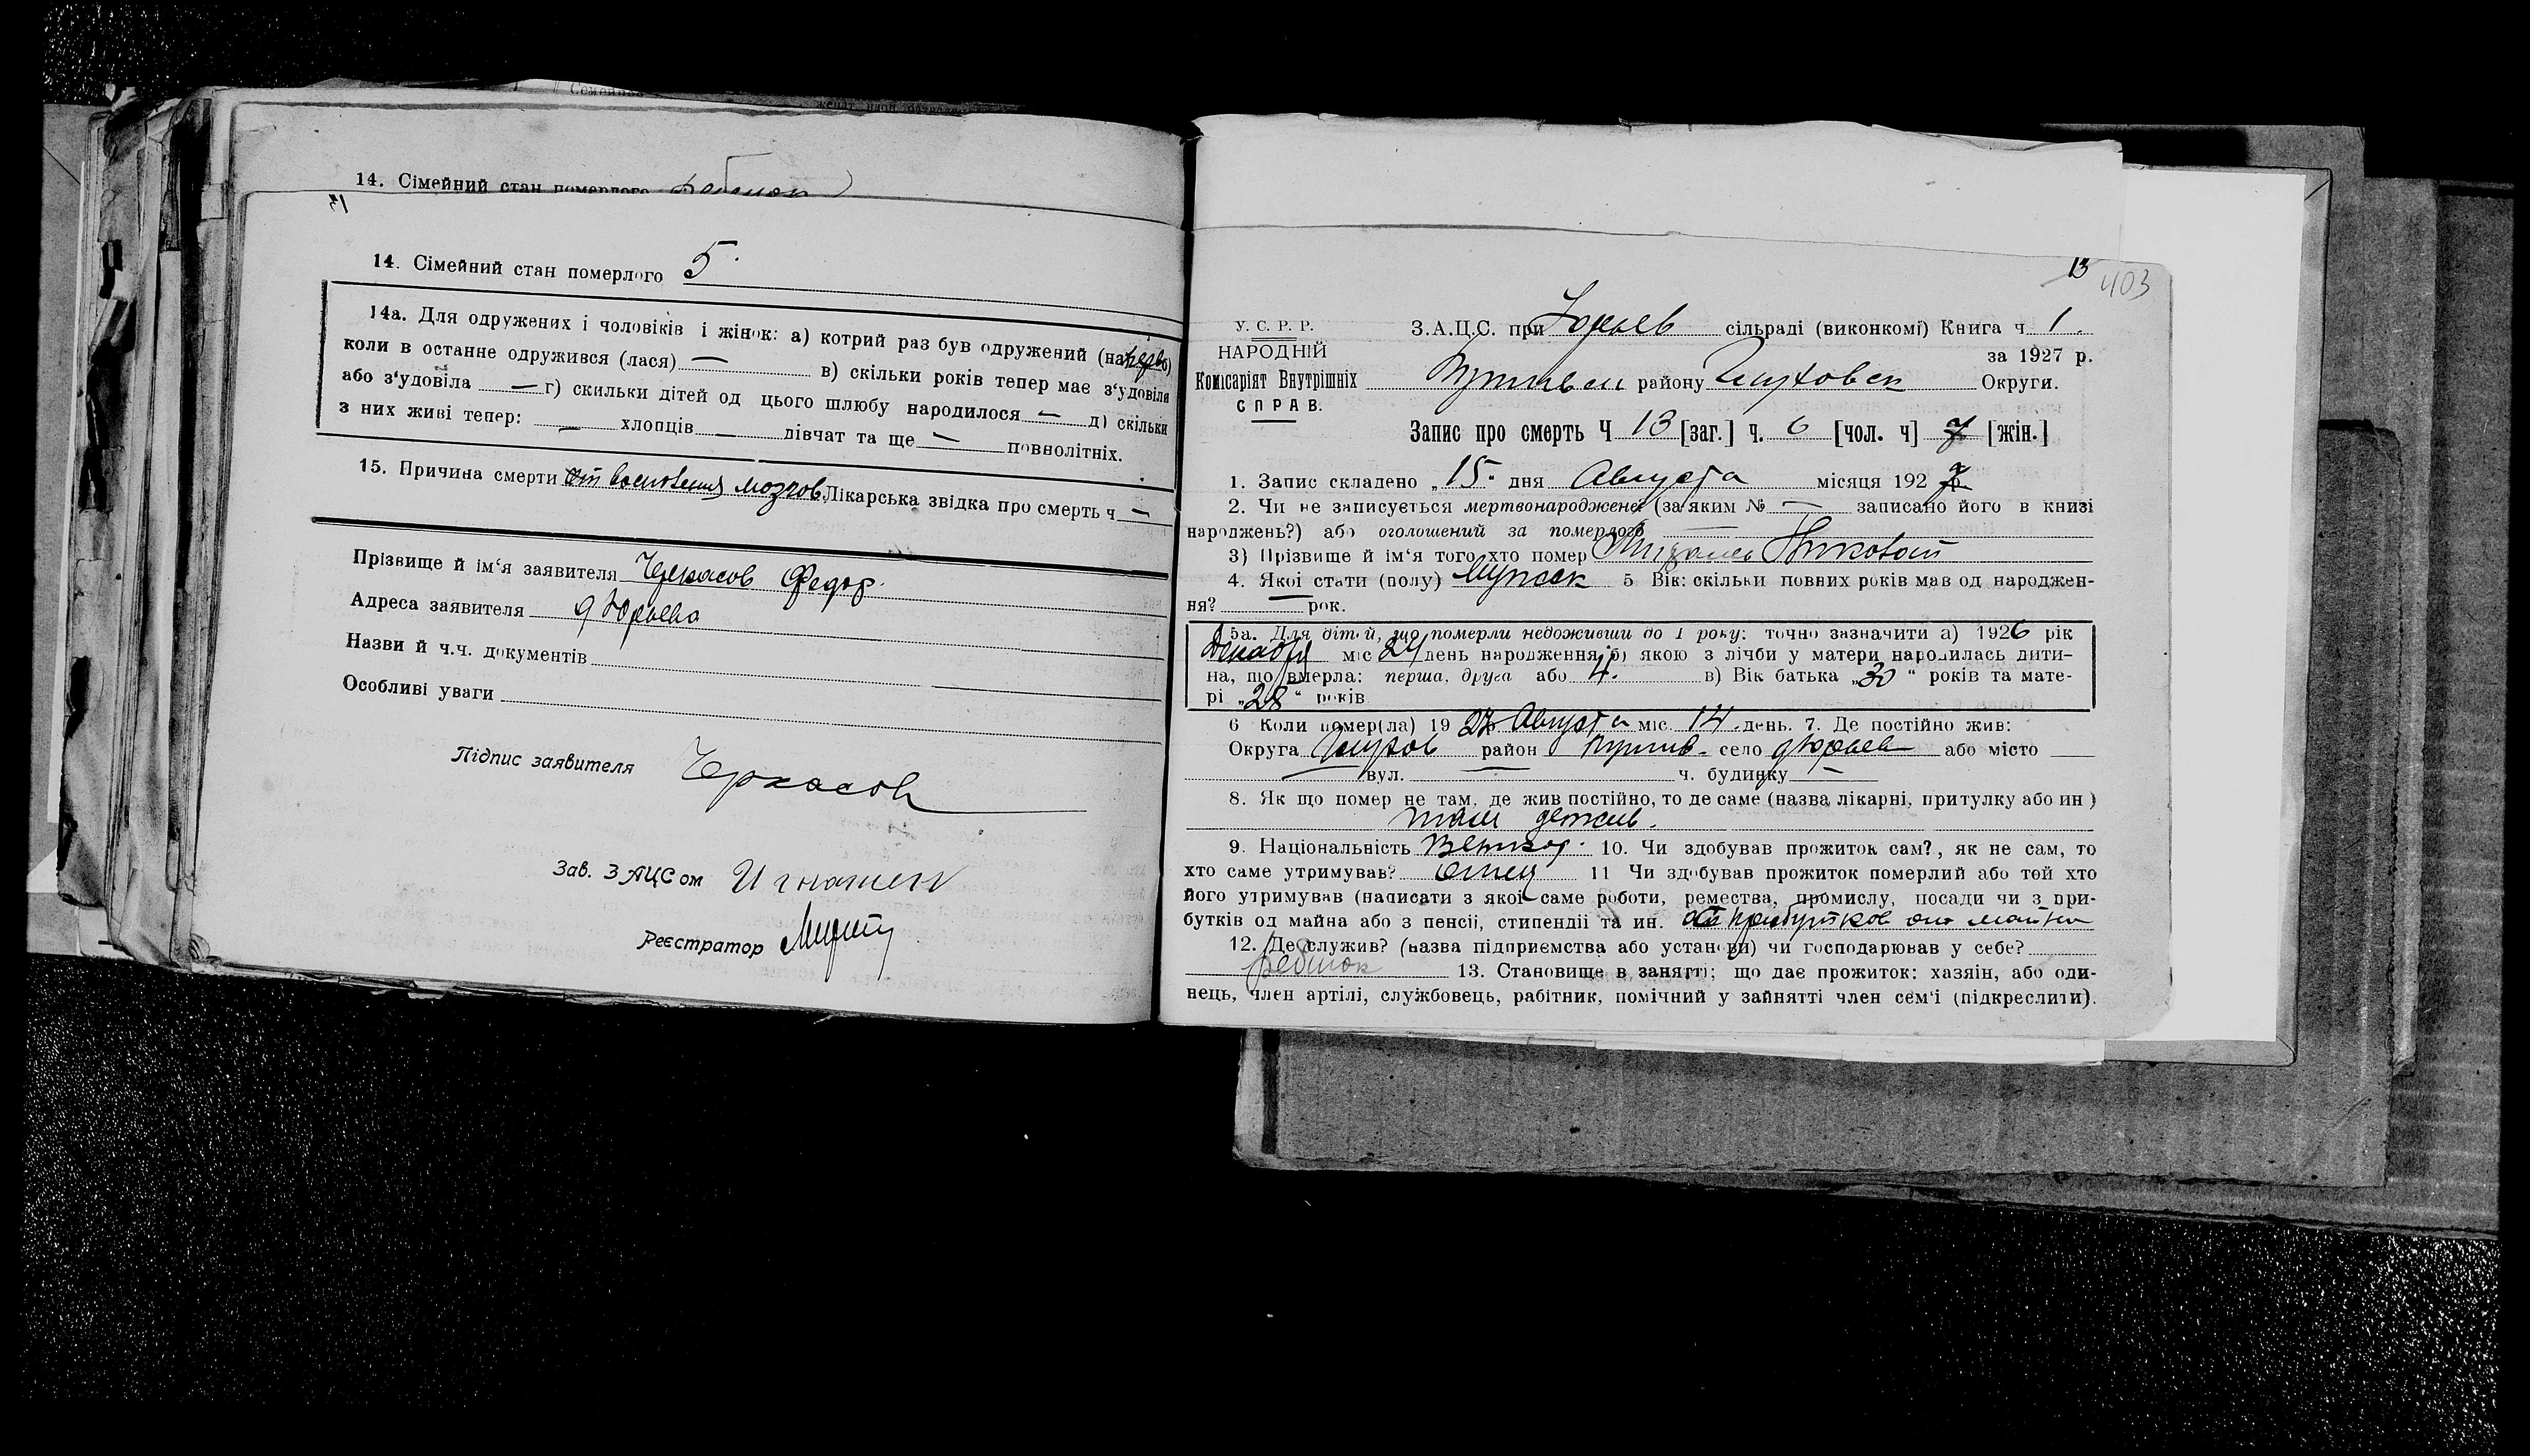 14. Сімейний стан померлого ребенок
13
14. Сімейний стан померлого 5
14а. Для одружених і чоловіків і жінок: а) котрий раз був одружений (на
коли в останне одружився (лася) — в) скільки років тепер має з'удовіля
або з'удовіла — г) скильки дітей од цього шлюбу народилося — д) скільки
з них живі тепер: — хлопців — дівчат та ще — повнолітніх.
15. Причина смерти от воспаления мозгов Лікарська звідка про смерть ч —
Прізвище й ім'я заявителя Черкасов Федор.
Адреса заявителя д Юрьева
Назви й ч.ч. документів
Особливі уваги
Підпис заявителя Черкасов
Зав. ЗАЦСом
Реєстратор
13 403
У. С. Р. Р.
НАРОДНІЙ
Комісаріят Внутрішніх
СПРАВ.
З.А.Ц.С. при Юрьев сільраді (виконкомі) Книга ч. 1.
за 1927 р.
Путивл району Глуховск Округи.
Запис про смерть Ч 13 [заг.] ч. 6 [чол. ч] [жін.]
1. Запис складено „15" дня Августа місяця 1927 р.
2. Чи не записується мертвонароджене (за яким № — записано його в книзі
народжень?) або оголошений за померлого —
3) Прізвище й ім'я того, хто помер
4. Якої стати (полу) Мужск 5 Вік: скільки повних років мав од народжен-
ня? — рок.
5а. Для дітей, що померли недоживши до 1 року: точно зазначити а) 1926 рік
Декабря міс 24 день народження; б) якою з лічби у матери народилась дити-
на, що вмерла: перша, друга або 4. в) Вік батька „30" років та мате-
рі „28" років
6 Коли помер(ла) 1927 Августа міс. 14. день. 7. Де постійно жив:
Округа Глухов район Путив. село д Юрьев або місто —
— вул. — ч. будинку —
8. Як що помер не там, де жив постійно, то де саме (назва лікарні, притулку або ин)
там где жив.
9. Національність Великор. 10. Чи здобував прожиток сам?, як не сам, то
хто саме утримував? Отец 11 Чи здобував прожиток померлий або той хто
його утримував (написати з якої саме роботи, ремества, промислу, посади чи з при-
бутків од майна або з пенсії, стипендії та ин. от прибутков от майна
12. Де служив? (назва підприємства або установи) чи господарював у себе?
ребенок 13. Становище в занятті; що дає прожиток: хазяїн, або оди-
нець, член артілі, службовець, рабітник, помічний у зайнятті член сем'ї (підкреслити).